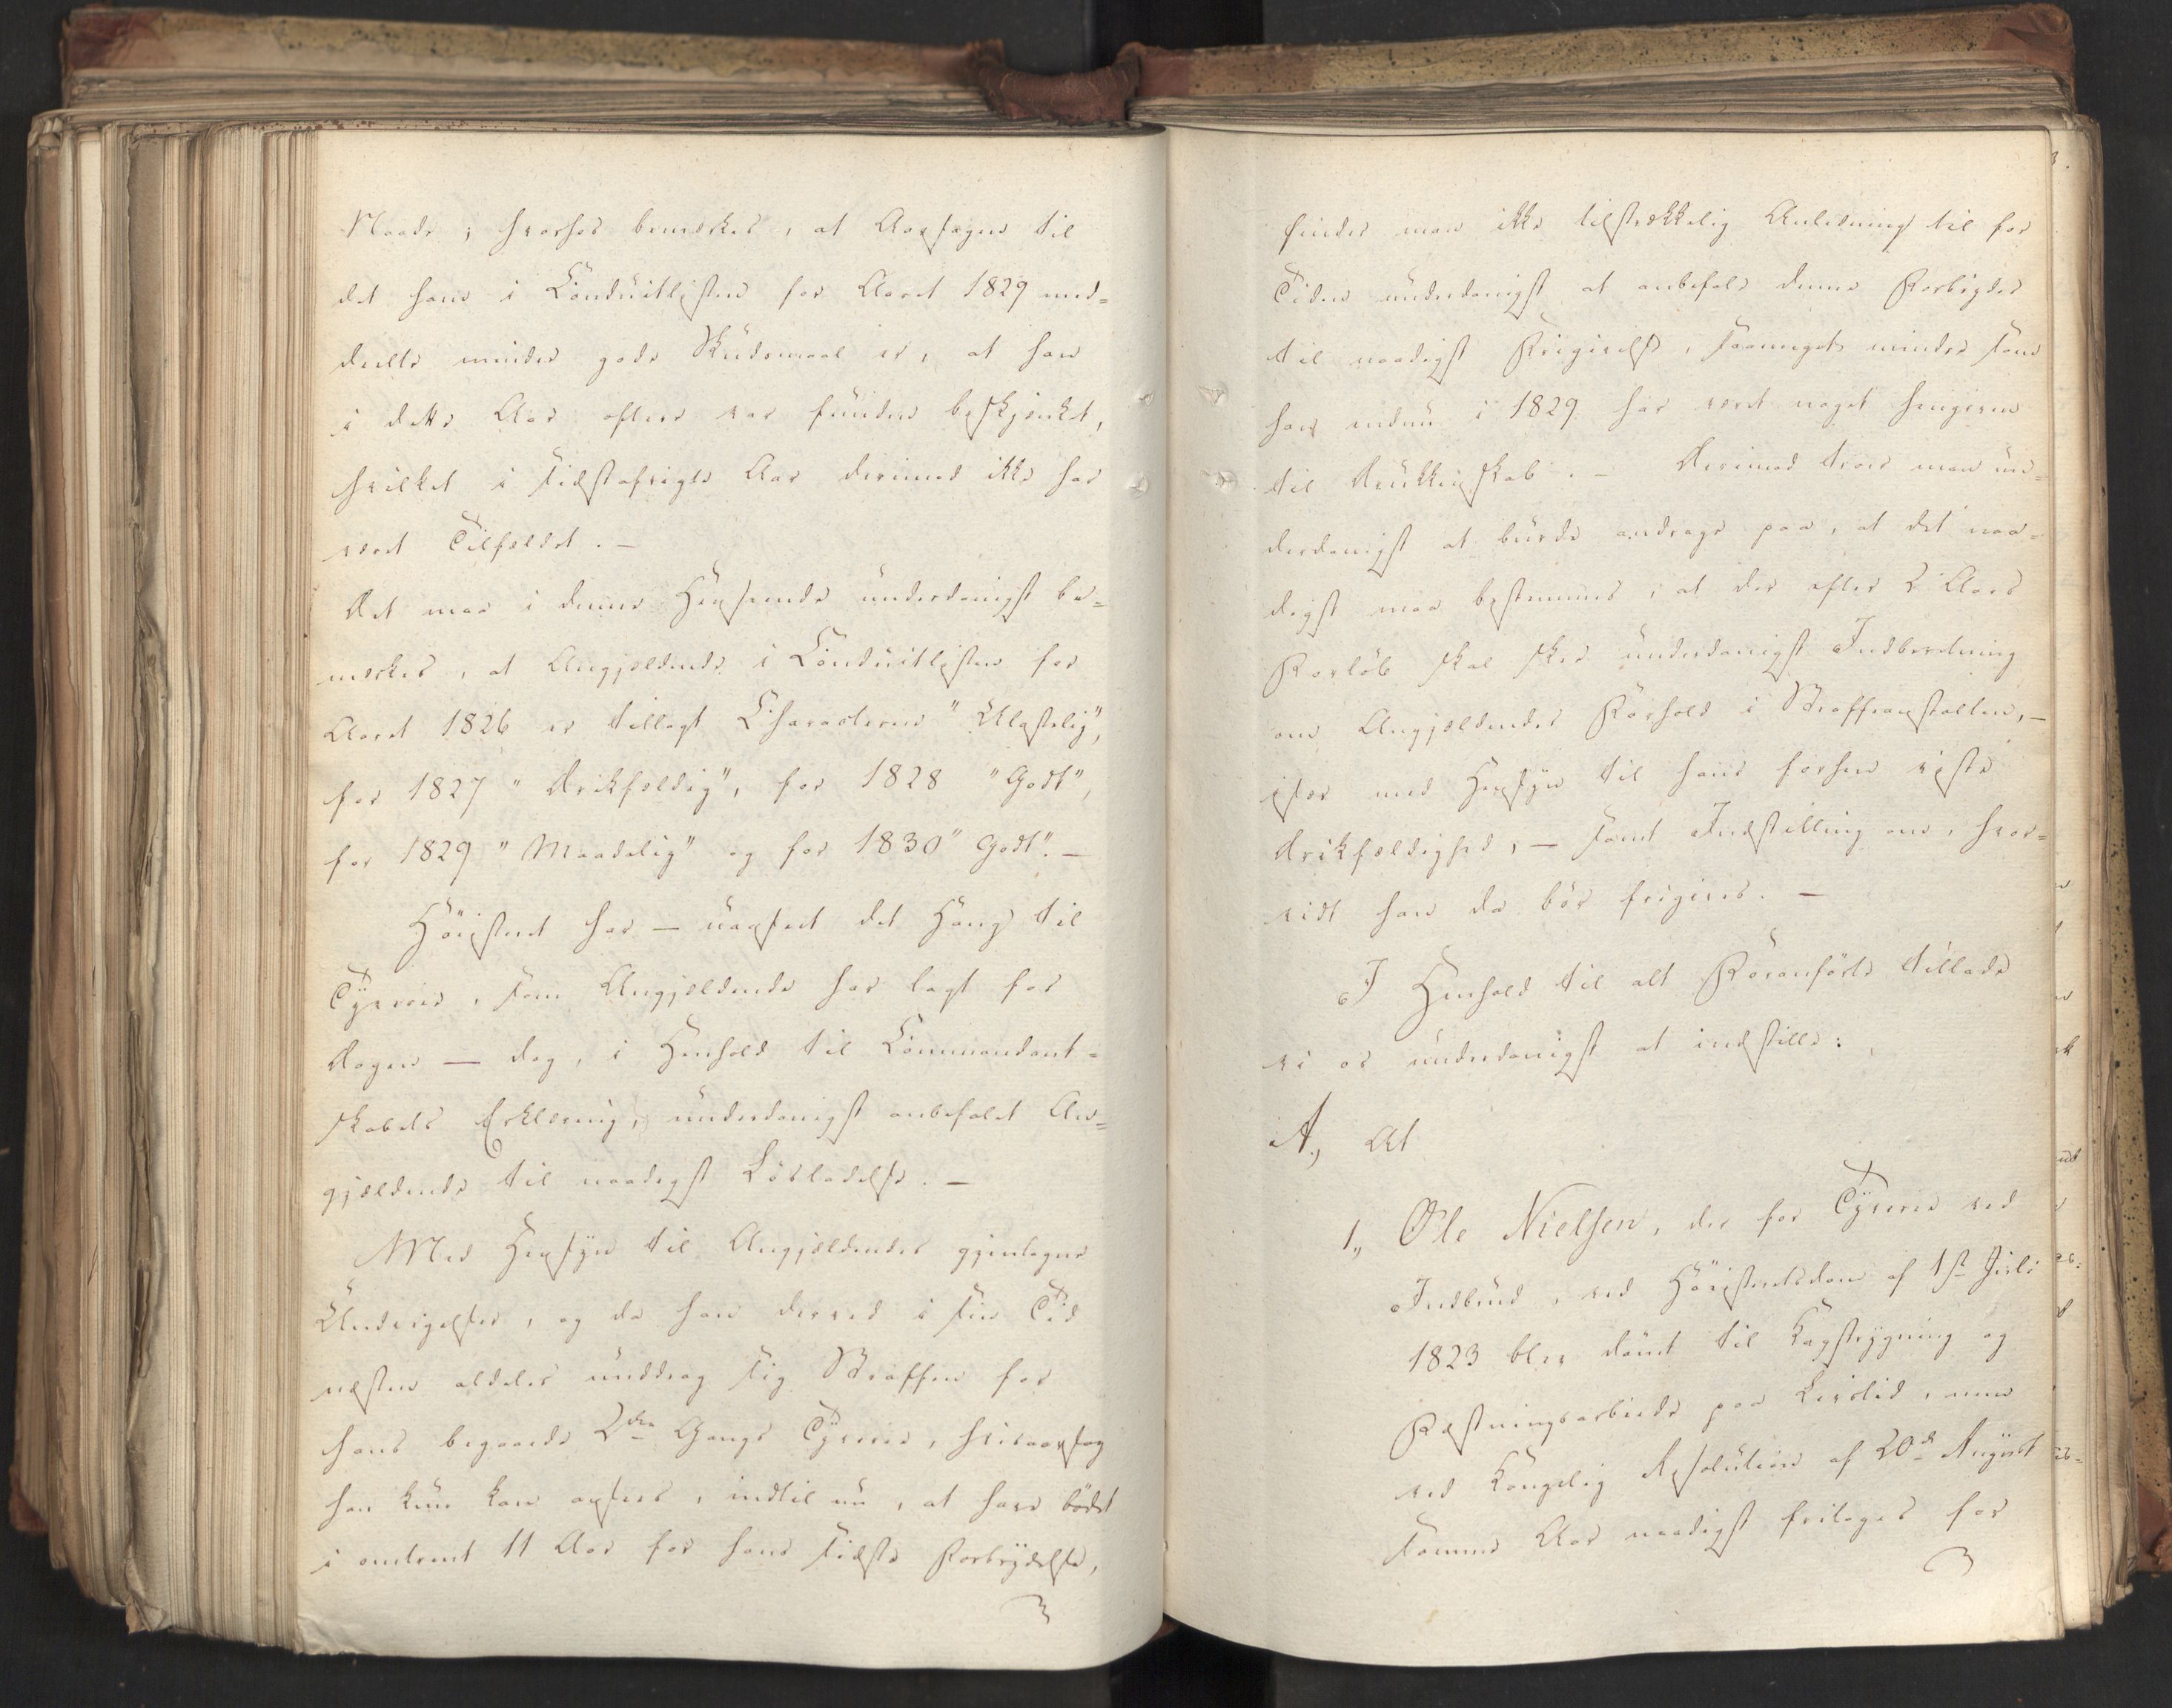 Naade; hvorhos bemærkes, at Aarsagen til
det ham i Conduitlisten for Aaret 1829 med=
deelte mindre gode Skudsmaal er, at han
i dette Aar oftere var funden beskjenket,
hvilket i sidstafvigte Aar derimod ikke har
været Tilfældet. –
Det maa i denne Henseende underdanigst be=
mærkes, at Angjældende i Conduitlisten for
Aaret 1826 er tillagt Characteren "Ulastelig",
for 1827 "Drikfældig", for 1828 "Godt",
for 1829 "Maadelig" og for 1830 "Godt". –
Höiesteret har – uanseet det Hang til
Tyverie, som Angjældende har lagt for
Dagen – dog, i Henhold til Commandant=
skabets Erklæring, underdanigst anbefalet An=
gjældende til naadigst Lösladelse. –
Med Hensyn til Angjældendes gjentagne
Undvigelser, og da han derved i sin Tid
næsten aldeles unddrog sig Straffen for
hans begaaede 2den Gangs Tyverie, hvisaarsag
han kun kan ansees, indtil nu, at have bödet
i omtrent 11 Aar for hans sidste Forbrydelse,
finder man ikke tilstrækkelig Anledning til for
Tiden underdanigst at anbefale denne Forbryder
til naadigst Frigivelse, saameget mindre som
han endnu i 1829 har været noget hengiven
til Drukkenskab. – Derimod troer man un=
derdanigst at burde andrage paa, at det naa=
digst maa bestemmes, at der efter 2 Aars
Forlöb skal skee underdanigst Indberetning
om Angjældendes Forhold i Straffeanstalten, –
især med Hensyn til hans forhen viste
Drikfældighed, – samt Indstilling om, hvor=
vidt han da bör frigives. –
I Henhold til alt Foranförte tillade
vi os underdanigst at indstille:
A., At
1., Ole Nielsen, der for Tyverie ved
Indbrud, ved Höiesteretsdom af 1ste Juli
1823 blev dömt til Kagstrygning og
Fæstningsarbeide paa Livstid, men
ved Kongelig Resolution af 20de August
samme Aar naadigst fritages for